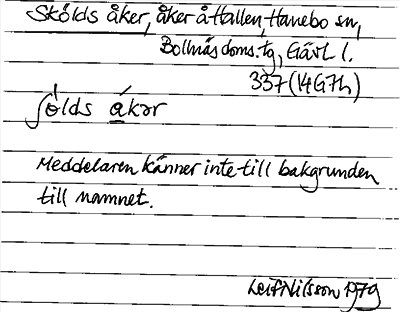 Skölds åker, åker å Hallen, Hanebo sn,
Bollnäs doms. tg, Gävl l.
337 (14G7h)
ʃölds ákər
Meddelaren känner inte till bakgrunden
till namnet.
Leif Nilsson 1979